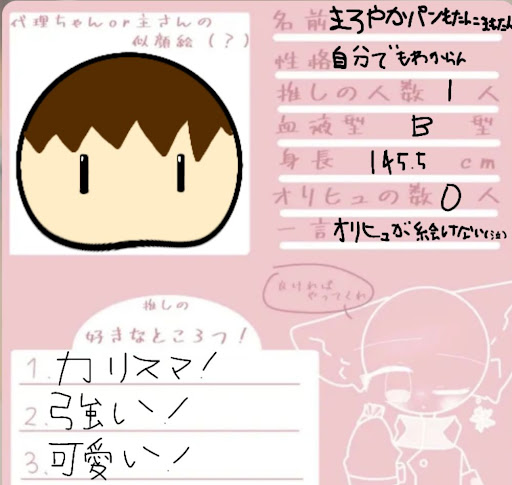 代理ちゃんor主さんの
似顔絵(?)
名前 まろやかパン
性格 自分でもわからん
推しの人数 1 人
血液型 B 型
身長 145.5 cm
オリヒュの数 0 人
一言 オリヒュが絵けない
良ければ
やってくれ
推しの
好きなところ3つ!
1. カリスマ!
2. 弓強い!
3. 可愛い!